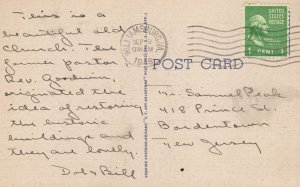 This is a
beautiful old
church. The
former pastor
Rev. Goodwin,
originated the
idea of restoring
the historic
buildings and
they are lovely.
Dot & Bill
WILLIAMSBURG, VA.
SEP
9 AM
POST CARD
UNITED STATES
POSTAGE
1 CENT 1
Mr. Samuel Peak
418 Prince St.
Bordentown
New Jersey